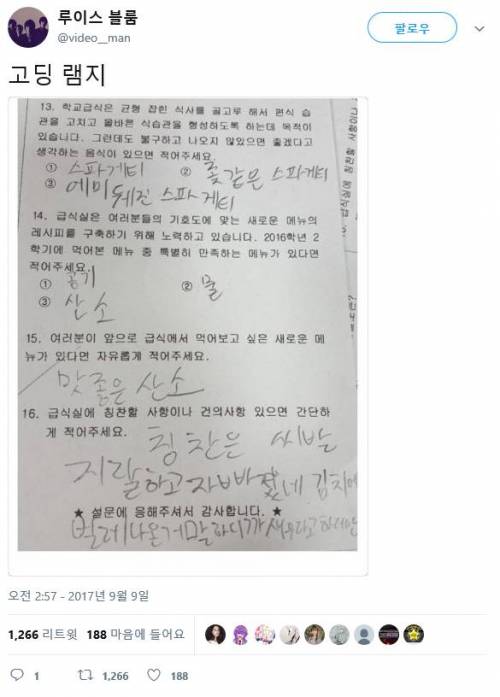 루이스 블룸
@video__man
팔로우
고딩 램지
13. 학교급식은 균형 잡힌 식사를 골고루 해서 편식 습
관을 고치고 올바른 식습관을 형성하도록 하는데 목적이
있습니다. 그런데도 불구하고 나오지 않았으면 좋겠다고
생각하는 음식이 있으면 적어주세요.
① 스파게티 ② 좆같은 스파게티
③ 에미 뒤진 스파게티
14. 급식실은 여러분들의 기호도에 맞는 새로운 메뉴의
레시피를 구축하기 위해 노력하고 있습니다. 2016학년 2
학기에 먹어본 메뉴 중 특별히 만족하는 메뉴가 있다면
적어주세요.
① 공기 ② 물
③ 산소
15. 여러분이 앞으로 급식에서 먹어보고 싶은 새로운 메
뉴가 있다면 자유롭게 적어주세요.
맛좋은 산소
16. 급식실에 칭찬할 사항이나 건의사항 있으면 간단하
게 적어주세요.
칭찬은 씨발
지랄하고 자빠졌네 김치에
★ 설문에 응해주셔서 감사합니다. ★
벌레나온거 말하니까 새우라고 하더만
오전 2:57 - 2017년 9월 9일
1,266 리트윗 188 마음에 들어요
1 1,266 188